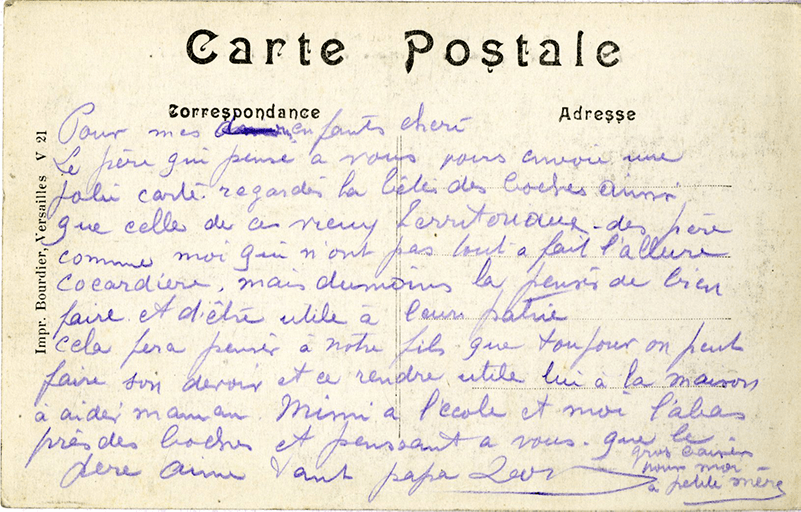 Carte Postale
Correspondance
Adresse
Impr. Bourdier, Versailles V 21
Pour mes enfants cheri
Le père qui pense a vous vous envoie une
jolie carte. regardès la tête des boches ainsi
que celle de ces vieux des père
comme moi qui n'ont pas tout a fait l'allure
cocardière, mais dumoins la pensés de bien
faire et d'être utile à leur patrie
cela fera penser à notre fils que toujour on peut
faire son devoir et ce rendre utile lui à la maison
à aider maman Mimi a l'école et moi labas
près des boches et pensant a vous. que le
père aime tant papa
gros baisèr
pour moi
a petite mère